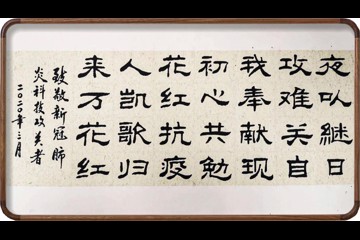 夜以继日
攻难关自
我奉献现
初心共勉
花红抗疫
人凯歌归
来万花红
致敬新冠肺
炎科技攻关者
二〇二〇年三月